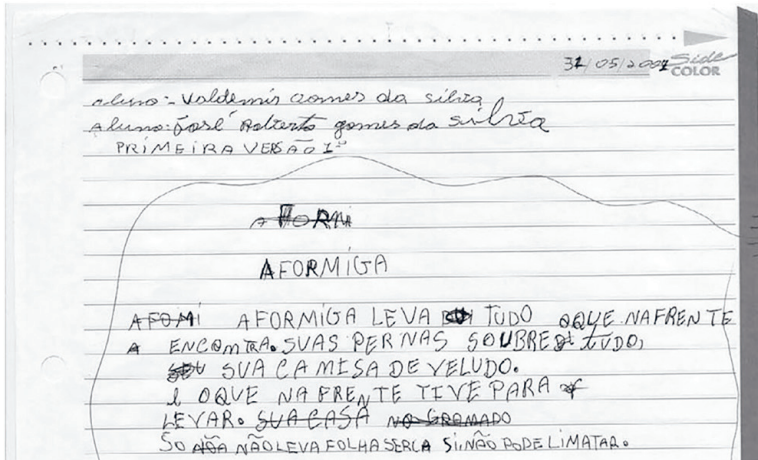 31/05/2001
Side
COLOR
aluno:- Valdemir Gomes da silvia
Aluno: José Roberto gomes da silvia
PRIMEIRA VERSÃO 1º
A FORMI
AFORMIGA
AFOMI AFORMIGA LEVA TUDO OQUE NAFRENTE
A ENCOMTRA. SUAS PERNAS SOUBRE TUDO,
SUA CAMISA DE VELUDO.
E OQUE NA FRENTE TIVE PARA
LEVAR. SUA CASA NO GRAMADO
SO NÃO LEVA FOLHA SERCA SINÃO PODE LIMATAR.